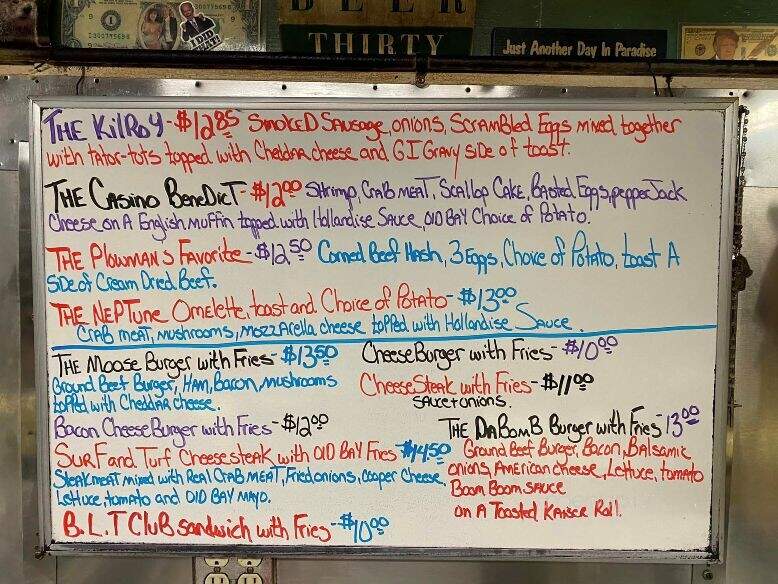 BEER
THIRTY
Just Another Day In Paradise
THE KilRoY-$12⁸⁵ SmokED Sausage, onions, ScramBled Eggs mixed together
with tator-tots topped with Cheddar cheese and GI Gravy side of toast.
THE Casino BeneDicT-$12⁰⁰ Shrimp, Crab meat, Scallop Cake, Basted Eggs, pepper Jack
Cheese on A English muffin topped with Hollandise Sauce, Old Bay Choice of Potato.
THE Plowman's Favorite-$12⁵⁰ Corned Beef Hash, 3 Eggs, Choice of Potato, toast A
Side of Cream Dried Beef.
THE NepTune Omelette, toast and Choice of Potato-$13⁰⁰
Crab meat, mushrooms, mozzarella cheese topped with Hollandise Sauce.
THE Moose Burger with Fries-$13⁵⁰
Ground Beef Burger, Ham, Bacon, mushrooms
topped with Cheddar cheese.
Bacon Cheese Burger with Fries-$12⁰⁰
Surf and Turf Cheesesteak with Old Bay Fries $14.⁵⁰
Steak meat mixed with Real Crab meat, Fried onions, Cooper Cheese,
Lettuce, tomato and Old Bay mayo.
B.L.T Club sandwich with Fries-$10⁰⁰
Cheese Burger with Fries-$10⁰⁰
Cheese Steak with Fries-$11⁰⁰
sauce+onions.
THE Da BomB Burger with Fries-13⁰⁰
Ground Beef Burger, Bacon, Balsamic
onions, American cheese, Lettuce, tomato
Boom Boom sauce
on A Toasted Kaiser Roll.